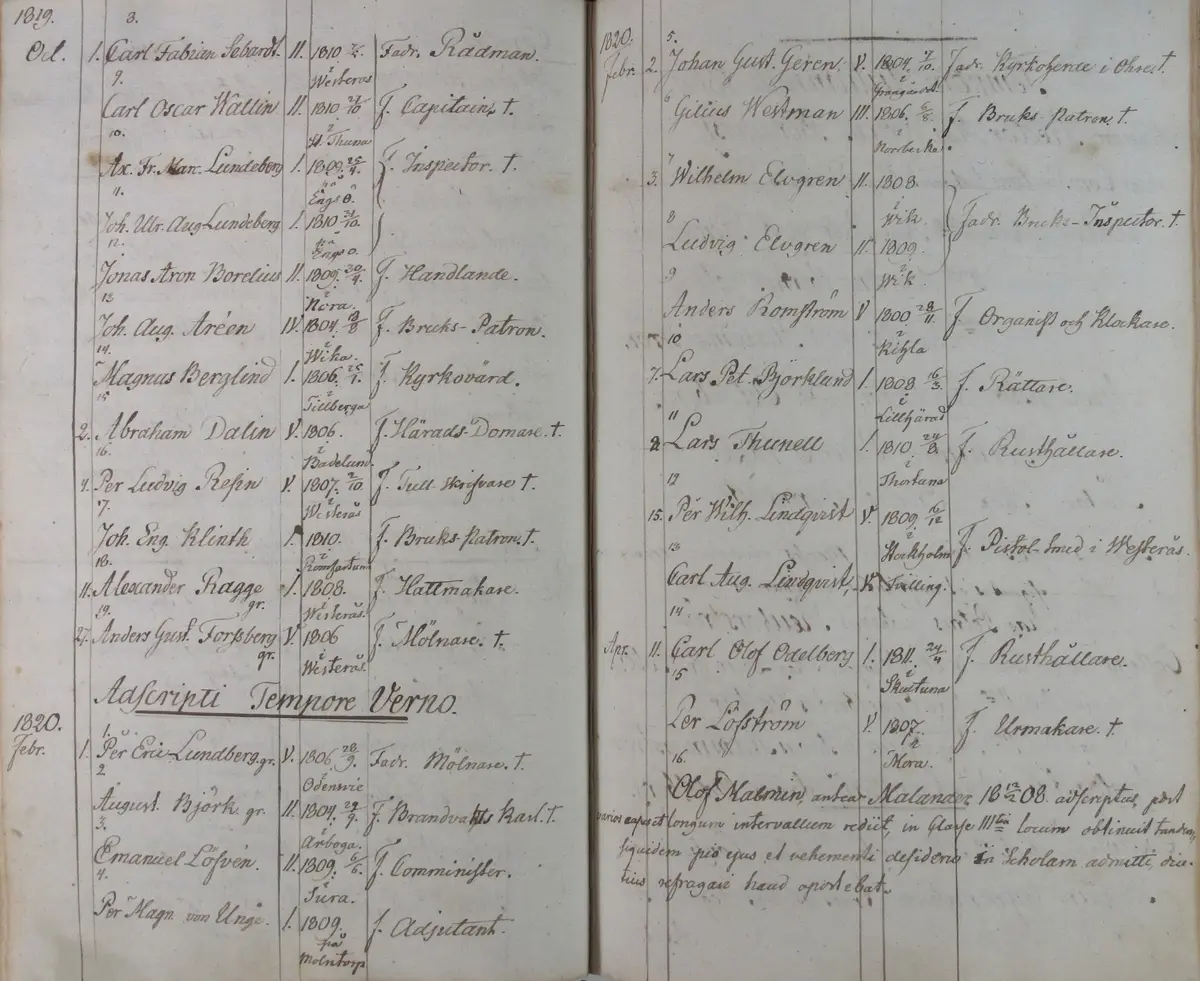 1819.
8.
Oct. 1. Carl Fabian Sebardt. II. 1810 Fadr. Rådman.
9. i Westerås
Carl Oscar Wallin II. 1810 f. Capitain. †
10. i St. Thuna
Ax. Fr. Mar. Lundeberg I. 1809. 25/4. f. Inspector. †
11. Engsö.
Joh. Ulr. Aug. Lundeberg I. 1810 21/10.
12. Engsö.
Jonas Aron Borelius II. 1809. 20/4. f. Handlande.
13 i Nora.
Joh. Aug. Aréen IV. 1804. 18/8 f. Bruks-Patron.
14. i Wika.
Magnus Berglind I. 1806. 25/1. f. Kyrkovärd.
15 i Tillberga
2. Abraham Dalin V. 1806. f. Härads-Domare. †
16. i Badelund
4. Per Ludvig Resin V. 1807. 2/10 f. Tull-skrifvare †
17. i Westerås
Joh. Eng. Klinth I. 1810. f. Bruks-Patron. †
18. i Romfartuna
11. Alexander Ragge gr. I 1808. f. Hattmakare.
19. i Westerås.
27. Anders Gust. Forssberg gr. V. 1806 f. Mölnare. †.
i Westerås.
Adscripti Tempore Verno.
1820.
Febr. 1. 1. Per Eric Lundberg gr. V. 1806 28/9. Fadr. Mölnare. †.
2 i Odensvie
August Björk gr. II. 1804. 29/9 f. Brandvakts Karl. †
3. Arboga.
Emanuel Löfvén. II. 1809. 6/6. f. Comminister.
4. i Sura.
Per Magn. von Unge. I. 1809. f. Adjutant.
på Molntorp
1820. 5.
Febr. 2. Johan Gust. Geren. V. 1804. 7/10. Fadr. Kyrkoherde i Ohrest.
6 i Grangärdet
Gilius Westman III. 1806. f. Bruks Patron. †
7 i Norrberke.
3. Wilhelm Elvgren II. 1808.
8 i Wik Fadr. Bruks-Inspector. †
Ludvig Elvgren II. 1809.
9 i Wik.
Anders Romström V 1800 28/11. f. Organist och Klockare.
10 i Kihla
7. Lars Pet. Björklund I. 1808 16/3. f. Rättare.
11 i Lillhärad
8 Lars Thunell I. 1810. 24/8. f. Rusthållare.
12 i Thortuna
15. Per Wilh. Lindqvist V. 1809. 16/12 f. Pistol-smed i Westerås.
13 i Stockholm
Carl Aug. Lindqvist, V. Tvilling.
14.
Apr. 11. Carl Olof Odelberg I. 1811. 24/4 f. Rusthållare.
15 i Skultuna
Per Löfström V. 1807. f. Urmakare. †
16. Mora.
Olof Malmin, antea Malander 18 12/2 08 adscriptus, post
varios casus et longum intervallum rediit, in Classe IIItia locum obtinuit tandem,
siquidem pio ejus et vehementi desiderio in Scholam admitti, diu-
tius refragari haud oportebat.